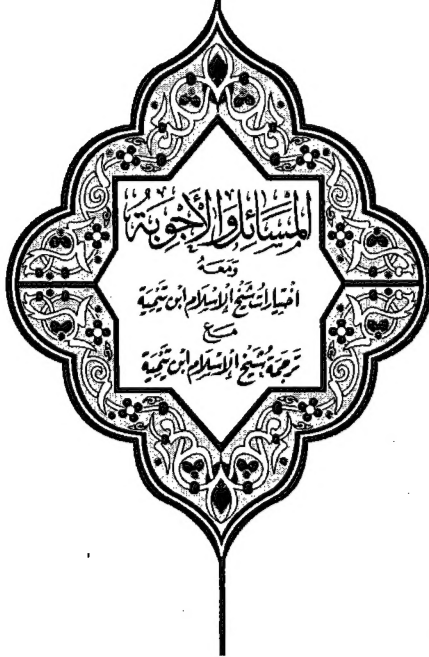 المَسَائِل وَالأَجْوِبَةُ
وَمَعَهُ
اخْتِيَارَات شَيْخِ الإِسْلَام ابْن تَيْمِيَّة
مَعَ
تَرْجَمَة شَيْخِ الإِسْلَام ابْن تَيْمِيَّة